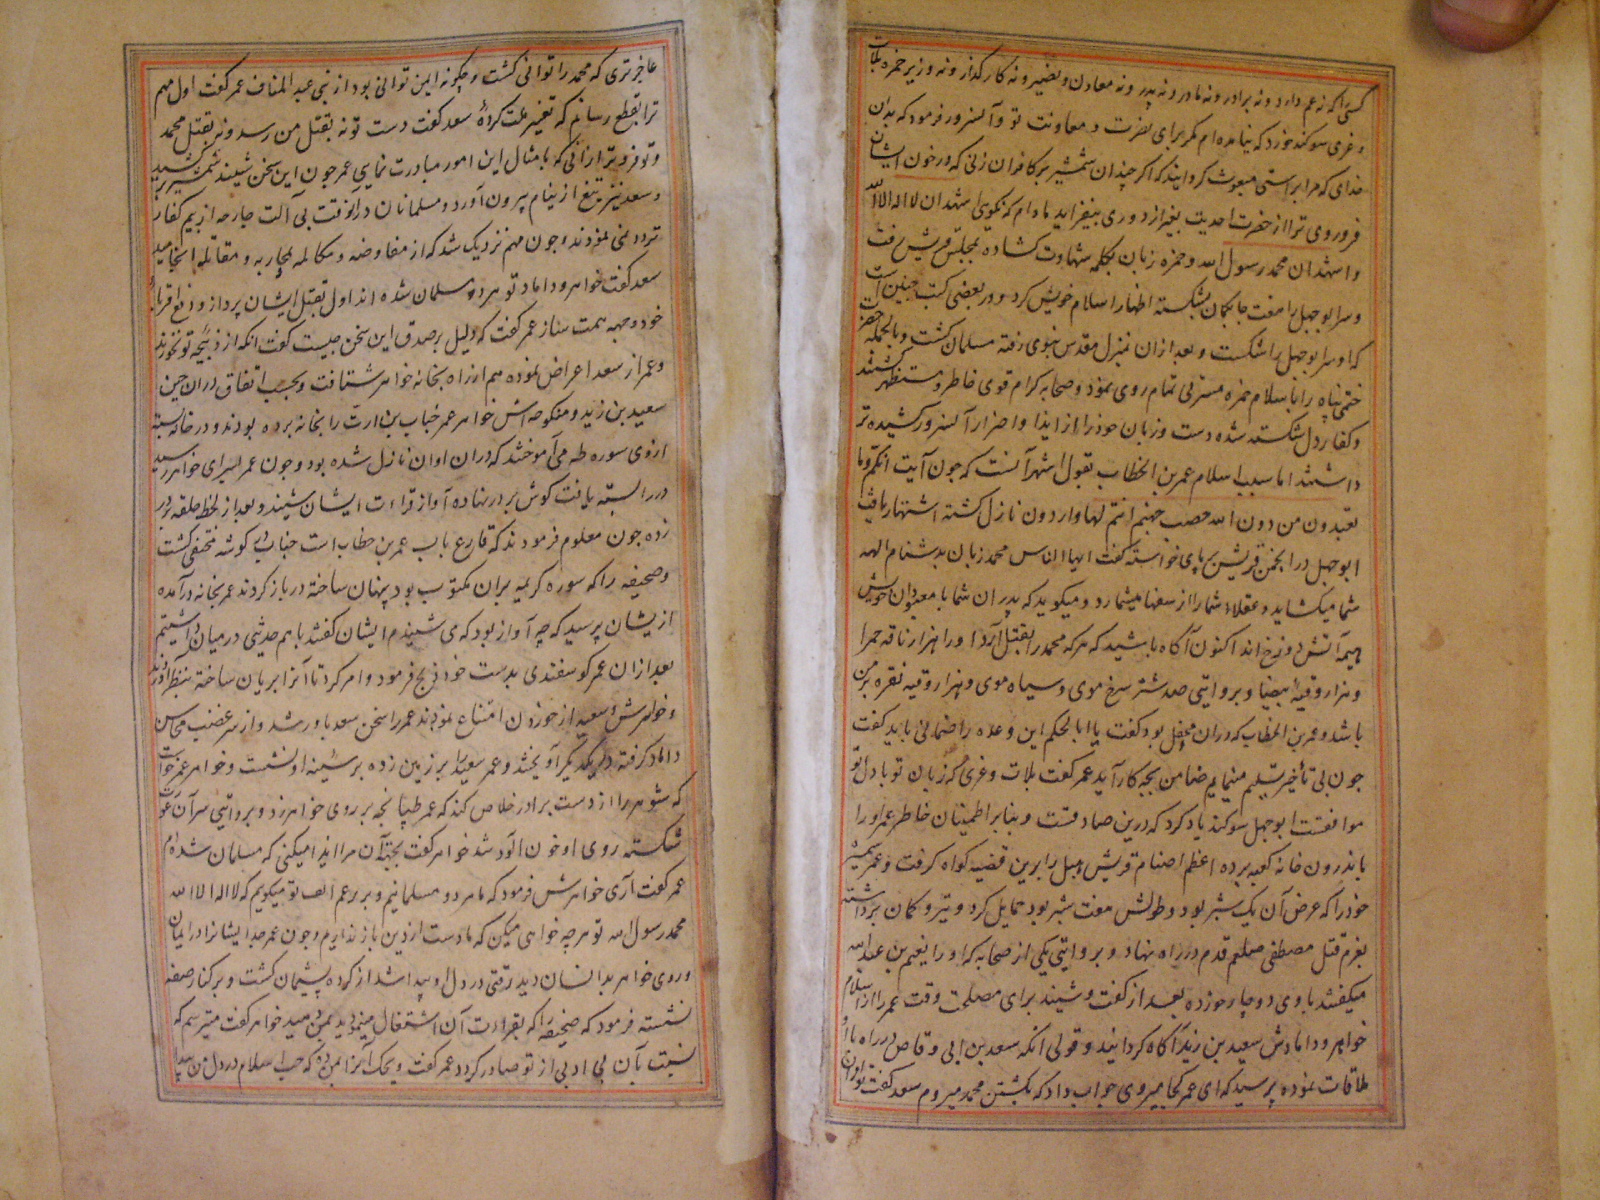 کسی را که نه عم دارد و نه برادر و نه مادر و نه پدر و نه معادن و نصیر و نه کارکذار و نه وزیر حمزه بلات
و عزی سوکند خورد که نیامده ام مکر برای نصرت و معاونت تو و آنسرور فرمود که بدان
خدای که مرا براستی مبعوث کردانیده که اکر چندان شمشیر بر کافران زنی که در خون ایشان
فرو روی ترا از حضرت احدیت بغیر از دوری نیفزاید مادام که نکوی اشهد ان لا اله الا الله
و اشهد ان محمد رسول الله و حمزه زبان بکلمه شهادت کشاده بمجلس قریش رفت
و سر ابو جهل را هفت جا بکمان بشکسته اظهار اسلام خویش کرد و در بعضی کتب چنین است
که او سر ابو جهل را شکست و بعد ازان بمنزل مقدس نبوی رفته مسلمان کشت و بالجمله حضرت
ختمی پناه را باسلام حمزه مسرتی تمام روی نمود و صحابه کرام قوی خاطر و مستظهر کشتند
و کفار دل شکسته شده دست و زبان خود را از ایذا و اضرار آنسرور کشیده تر
داشتند اما سبب اسلام عمر بن الخطاب بقول اشهر آنست که چون آیت انکم و ما
تعبدون من دون الله حصب جهنم انتم لها واردون نازل کشته اشتهار یافت
ابو جهل در انجمن قریش بر پای خواسته کفت ایها الناس محمد زبان بدشنام الهه
شما میکشاید و عقلاء شما را از سفها میشمارد و میکوید که پدران شما با معبودان خویش
هیمه آتش دوزخ اند اکنون آکاه باشید که هر که محمد را بقتل آرد او را هزار ناقه حمرا
و هزار وقیه بیضا و بروایتی صد شتر سرخ موی و سیاه موی و هزار وقیه نقره بر من
باشد و عمر بن الخطاب که دران محفل بود کفت یا ابا الحکم این وعده را ضمانی باید کفت
چون بی تأخیر تسلیم مینمایم ضامن بچه کار آید عمر کفت بلات و عزی که زبان تو با دل تو
موافقست ابو جهل سوکند یاد کرد که درین صادقست و بنابر اطمینان خاطر عمر او را
باندرون خانه کعبه برده اعظم اصنام قریش هبل را برین قضیه کواه کرفت و عمر شمشیر
خود را که عرض آن یک شبر بود و طولش هفت شبر بود حمایل کرد و تیر و کمان برداشته
بعزم قتل مصطفی صلعم قدم در راه نهاد و بروایتی یکی از صحابه که او را نعیم بن عبد الله
میکفتند با وی دوچار خورده بعد از کفت و شنید برای مصلحت وقت عمر را از اسلام
خواهر و دامادش سعید بن زید آکاه کردانید و قولی انکه سعد بن ابی وقاص در راه با او
ملاقات نموده پرسید که ای عمر کجا میروی جواب داد که بکشتن محمد میروم سعد کفت تو ازان
عاجزتری که محمد را توانی کشت و چکونه ایمن توانی بود از بنی عبد المناف عمر کفت اول مهم
ترا بقطع رسانم که تغییر ملت کردهٔ سعد کفت دست تو نه بقتل من رسد و نه بقتل محمد
و تو فروتر ازانی که بامثال این امور مبادرت نمایی عمر چون این سخن شنید شمشیر کشید
و سعد نیز تیغ از نیام بیرون آورد و مسلمانان درانوقت بی آلت جارحه از بیم کفار
تردد نمی نمودند و چون مهم نزدیک شد که از مفاوضه و مکالمه بمحاربه و مقاتله انجامید
سعد کفت خواهر و داماد تو هر دو مسلمان شده اند اول بقتل ایشان پرداز و دفع
خود وجهه همت ساز عمر کفت که دلیل بر صدق این سخن چیست کفت انکه از ذبیحه تو نخورند
و عمر از سعد اعراض نموده هم از راه بخانه خواهر شتافت و بحسب اتفاق دران حین
سعید بن زید و منکوحه اش خواهر عمر خباب بن ارت را بخانه برده بودند و در خانه بسته
از وی سوره طه می آموختند که دران اوان نازل شده بود و چون عمر بسرای خواهر رسید
در را بسته یافت کوش بر در نهاده آواز قراءت ایشان شنید و بعد از لحظه حلقه بر در
زده چون معلوم فرمودند که قارع باب عمر بن خطاب است خباب در کوشه مختفی کشت
و صحیفه را که سوره کریمه بران مکتوب بود پنهان ساخته در باز کردند عمر بخانه درآمده
از یشان پرسید که چه آواز بود که می شنیدم ایشان کفتند با هم حدیثی درمیان داشتیم
بعد ازان عمر کوسفندی بدست خود ذبح فرمود و امر کرد تا آنرا بریان ساخته بنظر آوردند
و خواهرش و سعید از خوردن امتناع نمودند عمر را سخن سعد باور شد و از سر غضب محاسن
داماد کرفته در یکدیکر آویختند و عمر سعید را بر زمین زده بر سینه او نشست و خواهر عمر خواست
که شوهر را از دست برادر خلاص کند که عمر طپانچه بر روی خواهر زد و بروایتی سر آن عورت
شکسته روی او خون آلود شد خواهر کفت بجهت آن مرا ایذا میکنی که مسلمان شده ام
عمر کفت آری خواهرش فرمود که ما هر دو مسلمانیم و بر رغم انف تو میکویم که لا اله الا الله
محمد رسول الله تو هر چه خواهی میکن که ما دست ازدین باز نداریم و چون عمر جد ایشانرا در ایمان
و روی خواهر بدانسان دید رقتی در دل او پیدا شد از کرده پشیمان کشت و بر کنار صفه
نشسته فرمود که صحیفه را که بقراءت آن اشتغال مینمودید بمن دهید خواهر کفت میترسم که
نسبت بآن بی ادبی از تو صادر کردد عمر کفت ویحک آنرا بمن ده که حب اسلام در دل من پیدا